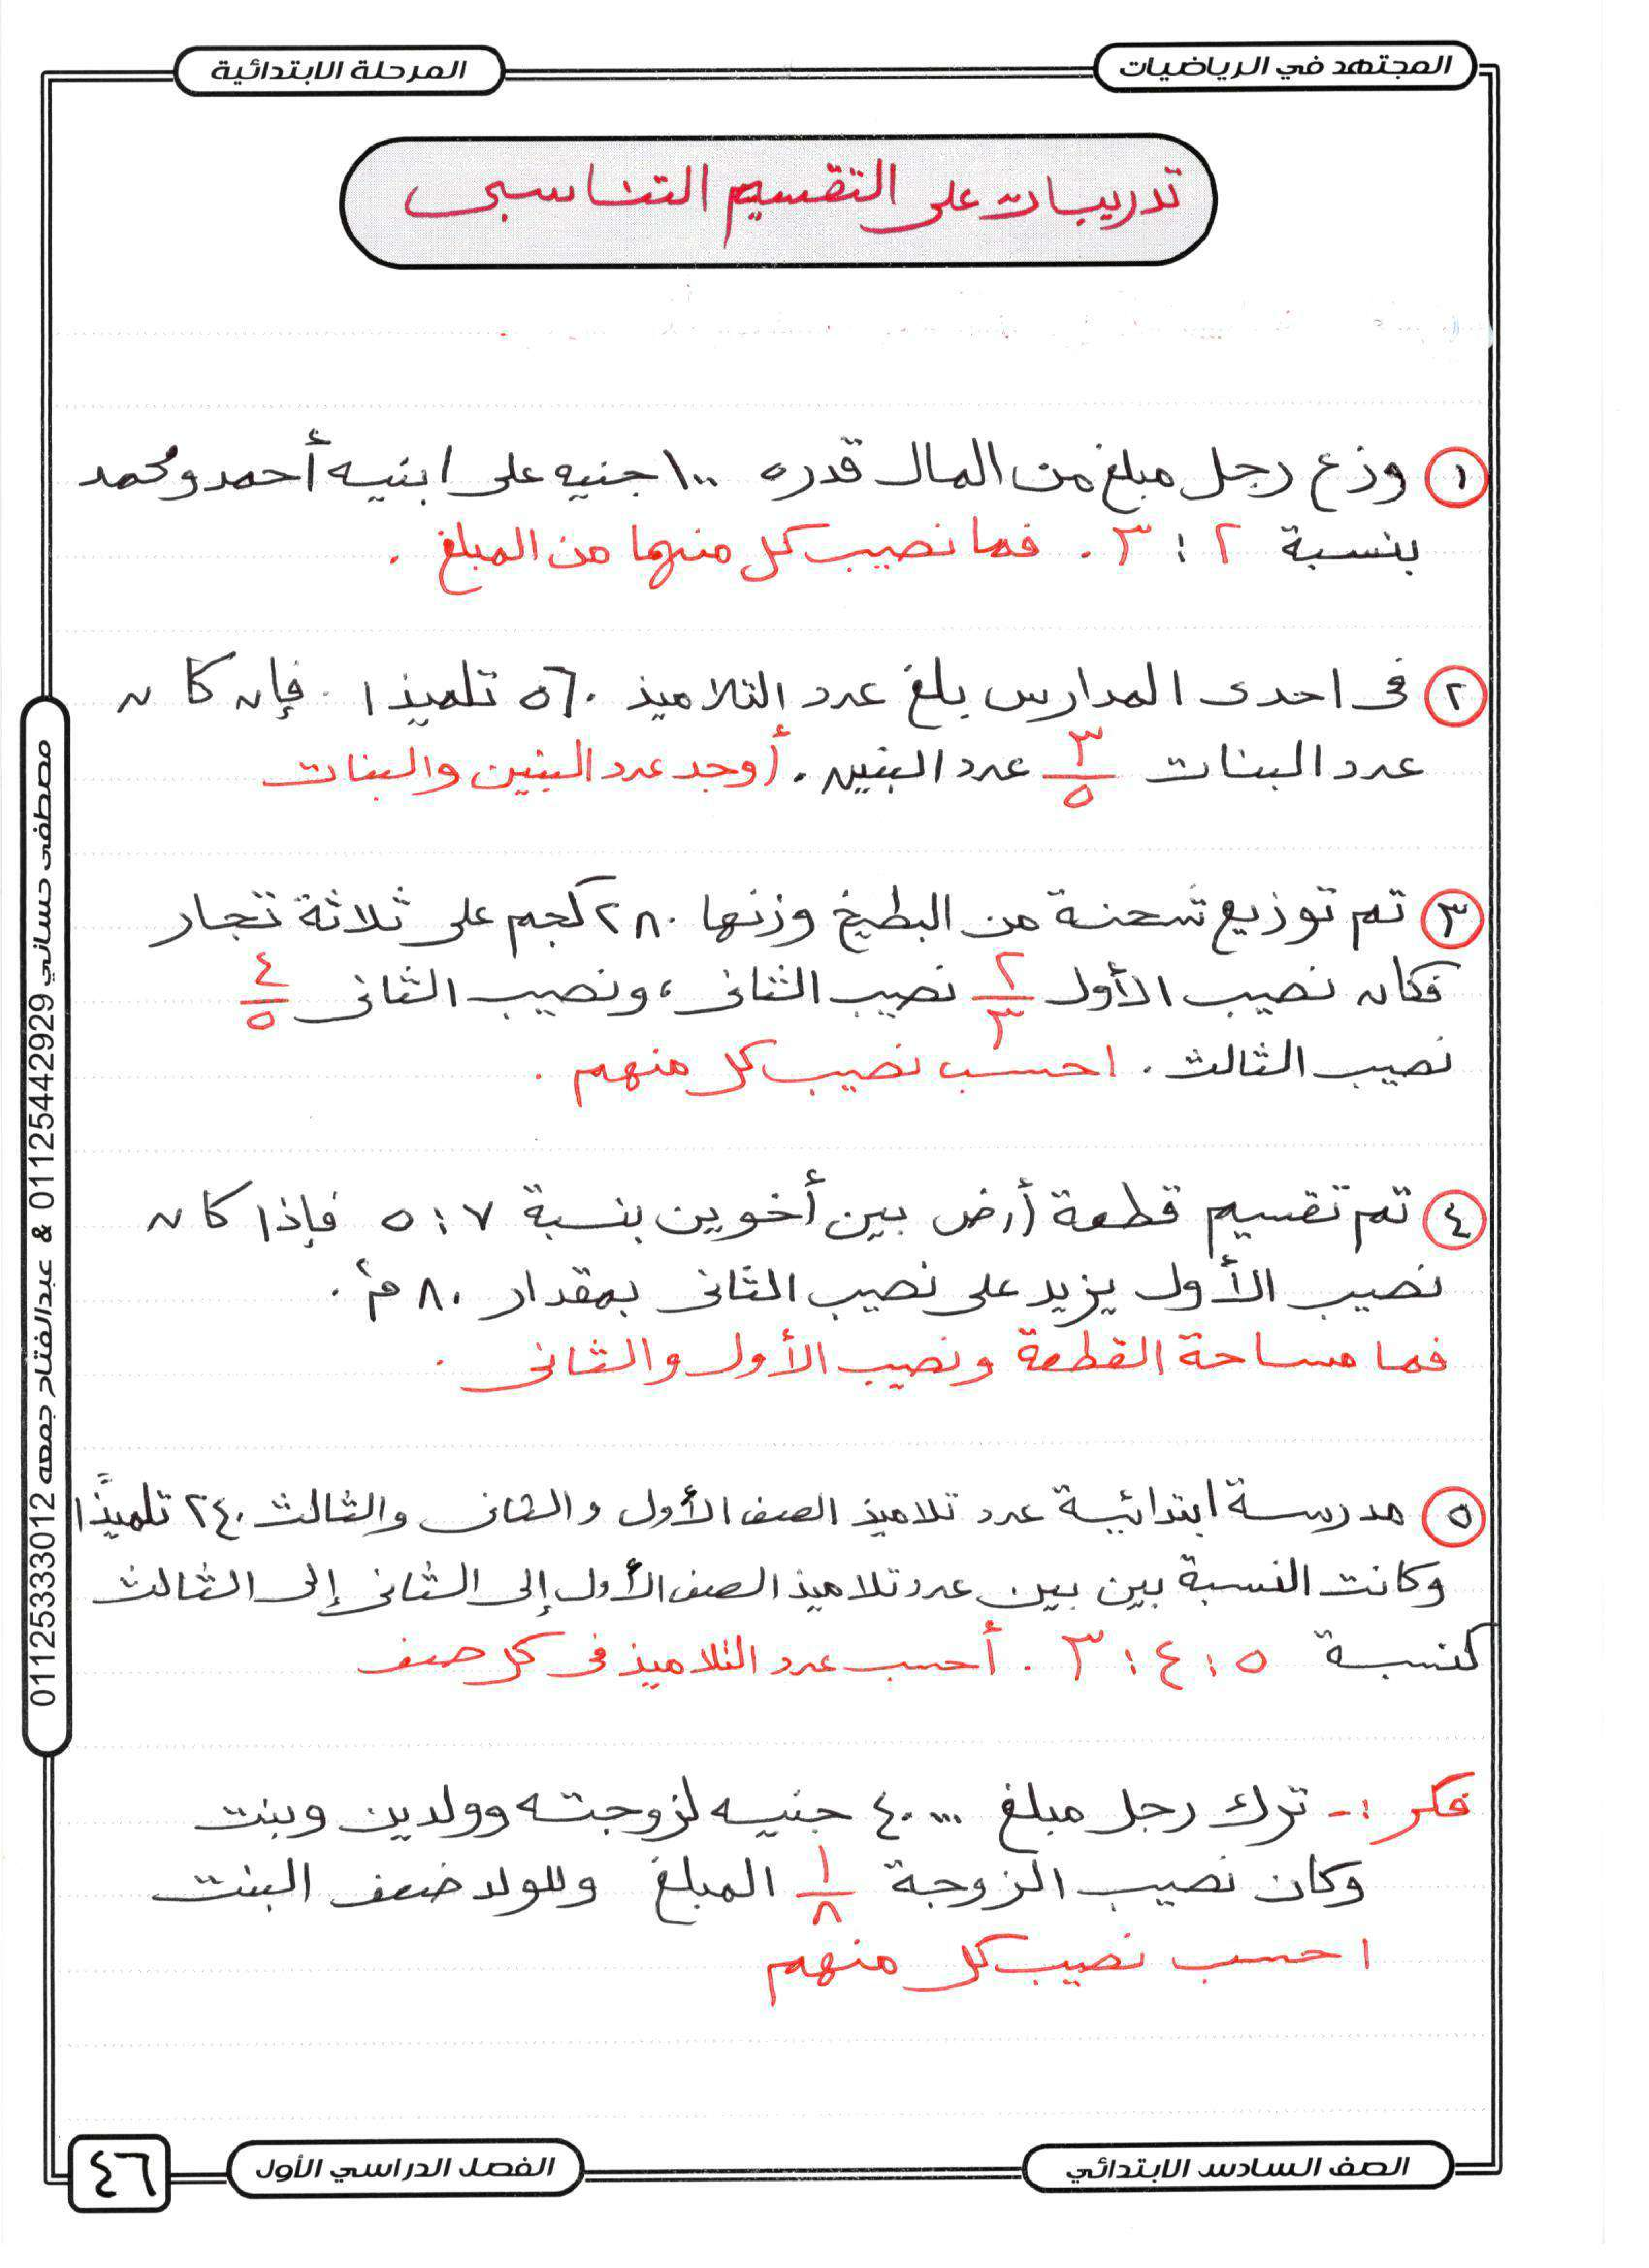 المجتهد في الرياضيات
المرحلة الابتدائية
تدريبات على التقسيم التناسبى
١ وزع رجل مبلغ من المال قدره ١٠٠ جنيه على ابنيه أحمد ومحمد
بنسبة ٢ : ٣ . فما نصيب كل منهما من المبلغ .
٢ فى احدى المدارس بلغ عدد التلاميذ ٥٦٠ تلميذا . فإن كان
عدد البنات ٣/٥ عدد البنين . أوجد عدد البنين والبنات
٣ تم توزيع شحنة من البطيخ وزنها ٢٨٠ كجم على ثلاثة تجار
فكان نصيب الأول ٢/٣ نصيب الثانى ، ونصيب الثانى ٤/٥
نصيب الثالث . احسب نصيب كل منهم .
٤ تم تقسيم قطعة أرض بين أخوين بنسبة ٧ : ٥ فإذا كان
نصيب الأول يزيد على نصيب الثانى بمقدار ٨٠ م٢ .
فما مساحة القطعة ونصيب الأول والثانى .
٥ مدرسة ابتدائية عدد تلاميذ الصف الأول والثانى والثالث ٢٤٠ تلميذًا
وكانت النسبة بين بين عدد تلاميذ الصف الأول إلى الثانى إلى الثالث
كنسبة ٥ : ٤ : ٣ . أحسب عدد التلاميذ فى كل صف
فكر :- ترك رجل مبلغ ٤٠٠٠٠ جنيه لزوجته وولدين وبنت
وكان نصيب الزوجة ١/٨ المبلغ وللولد ضعف البنت
احسب نصيب كل منهم
مصطفى حساني 01125442929 & عبدالفتاح جمعه 01125333012
الصف السادس الابتدائي
الفصل الدراسي الأول
٤٦